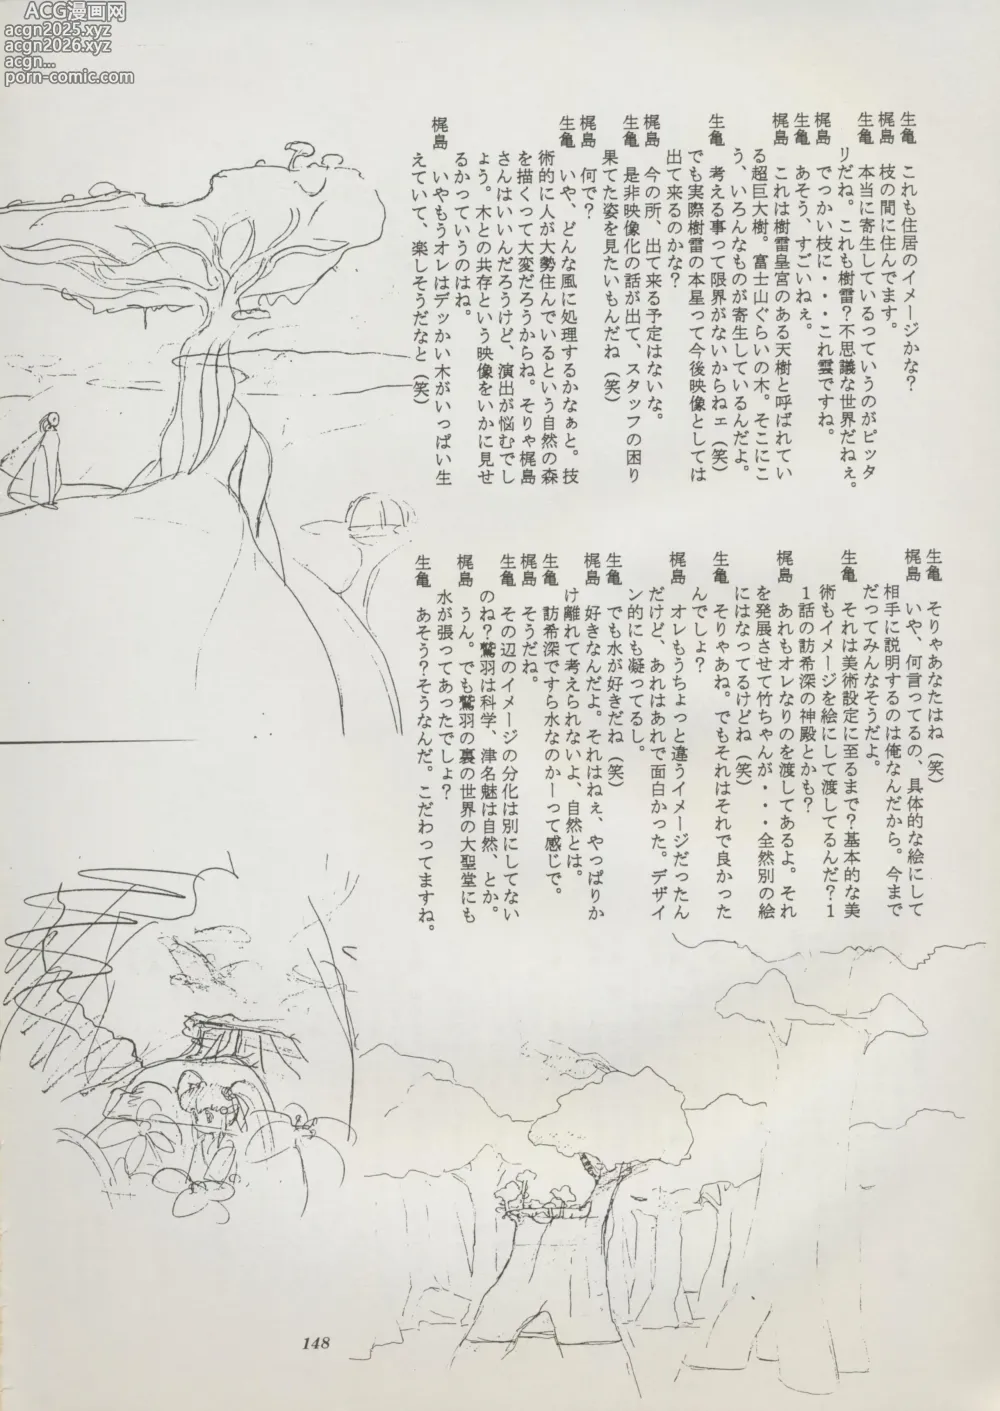 ACG漫画网
acgn2025.xyz
acgn2026.xyz
acgn...
porn-comic.com
生亀　これも住居のイメージかな？
梶島　枝の間に住んでます。
生亀　本当に寄生しているっていうのがピッタ
リだね。これも樹雷？不思議な世界だねぇ。
梶島　でっかい枝に・・・これ雲ですね。
生亀　あそう、すごいねぇ。
梶島　これは樹雷皇宮のある天樹と呼ばれてい
る超巨大樹。富士山ぐらいの木。そこにこ
う、いろんなものが寄生しているんだよ。
生亀　考える事って限界がないからねェ（笑）
でも実際樹雷の本星って今後映像としては
出て来るのかな？
梶島　今の所、出て来る予定はないな。
生亀　是非映像化の話が出て、スタッフの困り
果てた姿を見たいもんだね（笑）
梶島　何で？
生亀　いや、どんな風に処理するかなぁと。技
術的に人が大勢住んでいるという自然の森
を描くって大変だろうからね。そりゃ梶島
さんはいいんだろうけど、演出が悩むでし
ょう。木との共存という映像をいかに見せ
るかっていうのはね。
梶島　いやもうオレはデッかい木がいっぱい生
えていて、楽しそうだなと（笑）
生亀　そりゃあなたはね（笑）
梶島　いや、何言ってるの、具体的な絵にして
相手に説明するのは俺なんだから。今まで
だってみんなそうだよ。
生亀　それは美術設定に至るまで？基本的な美
術もイメージを絵にして渡してるんだ？1
1話の訪希深の神殿とかも？
梶島　あれもオレなりのを渡してあるよ。それ
を発展させて竹ちゃんが・・・全然別の絵
にはなってるけどね（笑）
生亀　そりゃあね。でもそれはそれで良かった
んでしょ？
梶島　オレもうちょっと違うイメージだったん
だけど、あれはあれで面白かった。デザイ
ン的にも凝ってるし。
生亀　でも水が好きだね（笑）
梶島　好きなんだよ。それはねぇ、やっぱりか
け離れて考えられないよ、自然とは。
生亀　訪希深ですら水なのかーって感じで。
梶島　そうだね。
生亀　その辺のイメージの分化は別にしてない
のね？鷲羽は科学、津名魅は自然、とか。
梶島　うん。でも鷲羽の裏の世界の大聖堂にも
水が張ってあったでしょ？
生亀　あそう？そうなんだ。こだわってますね。
148